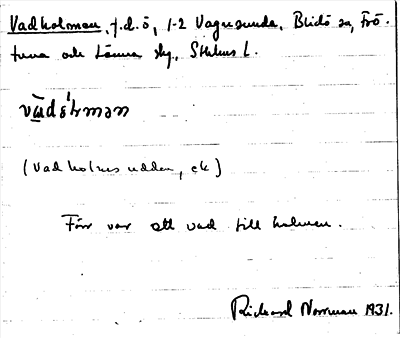 Vadholmen, f.d. ö, 1-2 Vagnsunda, Blidö sn, Frö-
tuna och Länna skg, Sthlms l.
(Vadholmsudden, ek)
Förr var ett vad till holmen.
Rickard Norrman 1931.